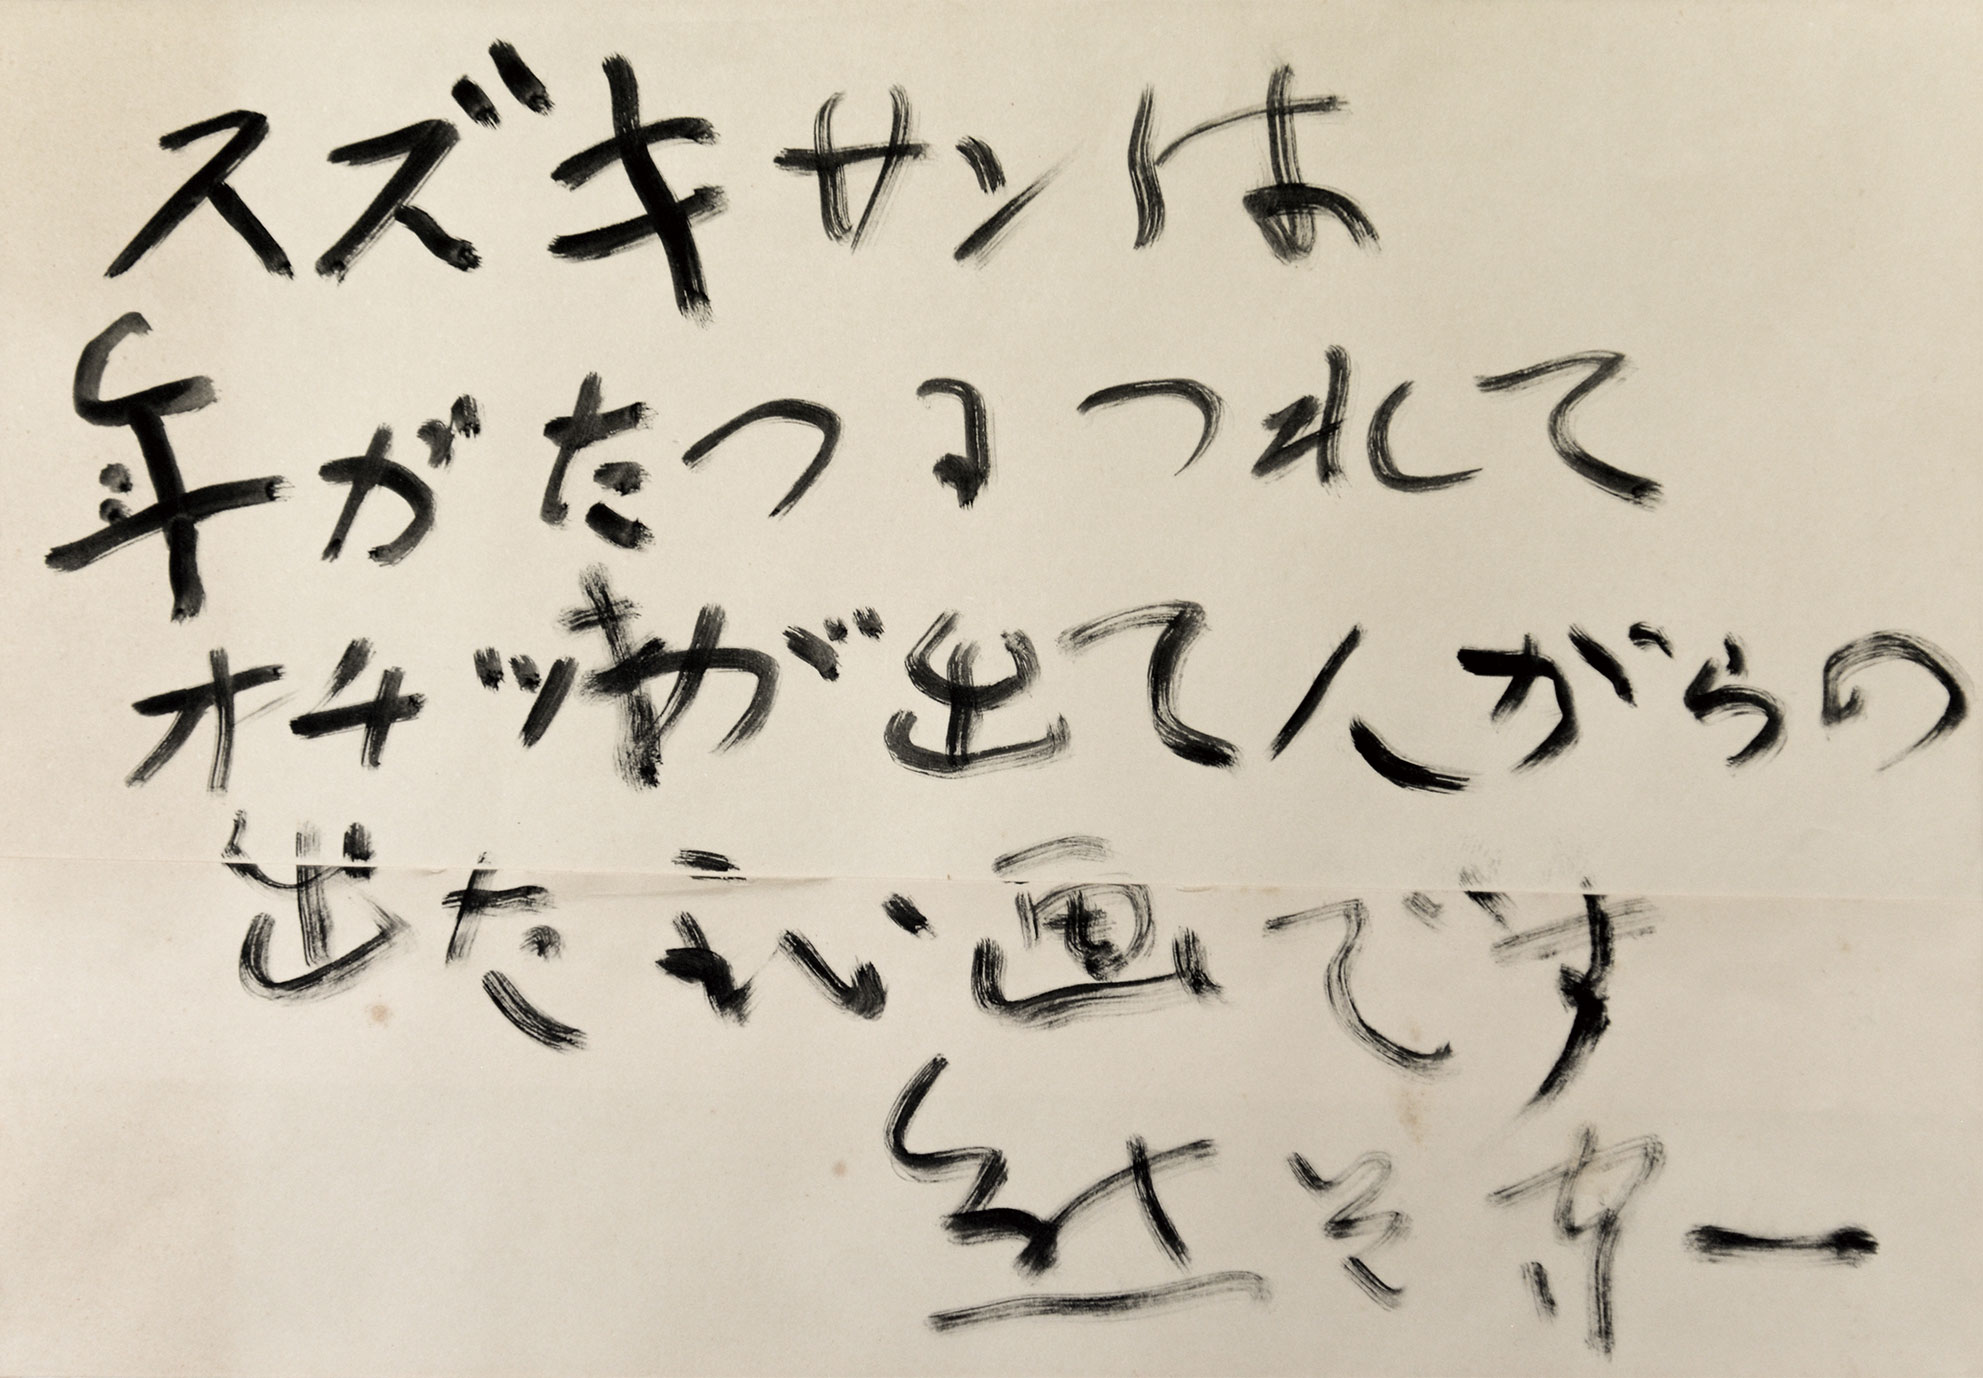 スズキサンは
年がたつにつれて
オチツキが出て人がらの
出たえい画です
熊谷守一